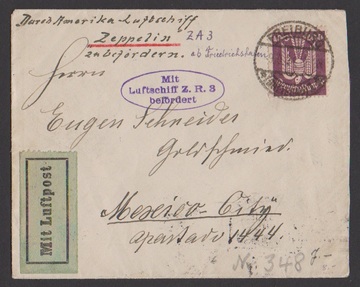 Durch Amerika-Luftschiff
Zeppelin ZR3
zu befördern. ab Friedrichshafen
FREIBURG
Herrn
Mit
Luftschiff Z. R. 3
befördert
Eugen Schneider
Goldschmied.
Mexico-City
apartado 1494
Mit Luftpost
No 348 7-